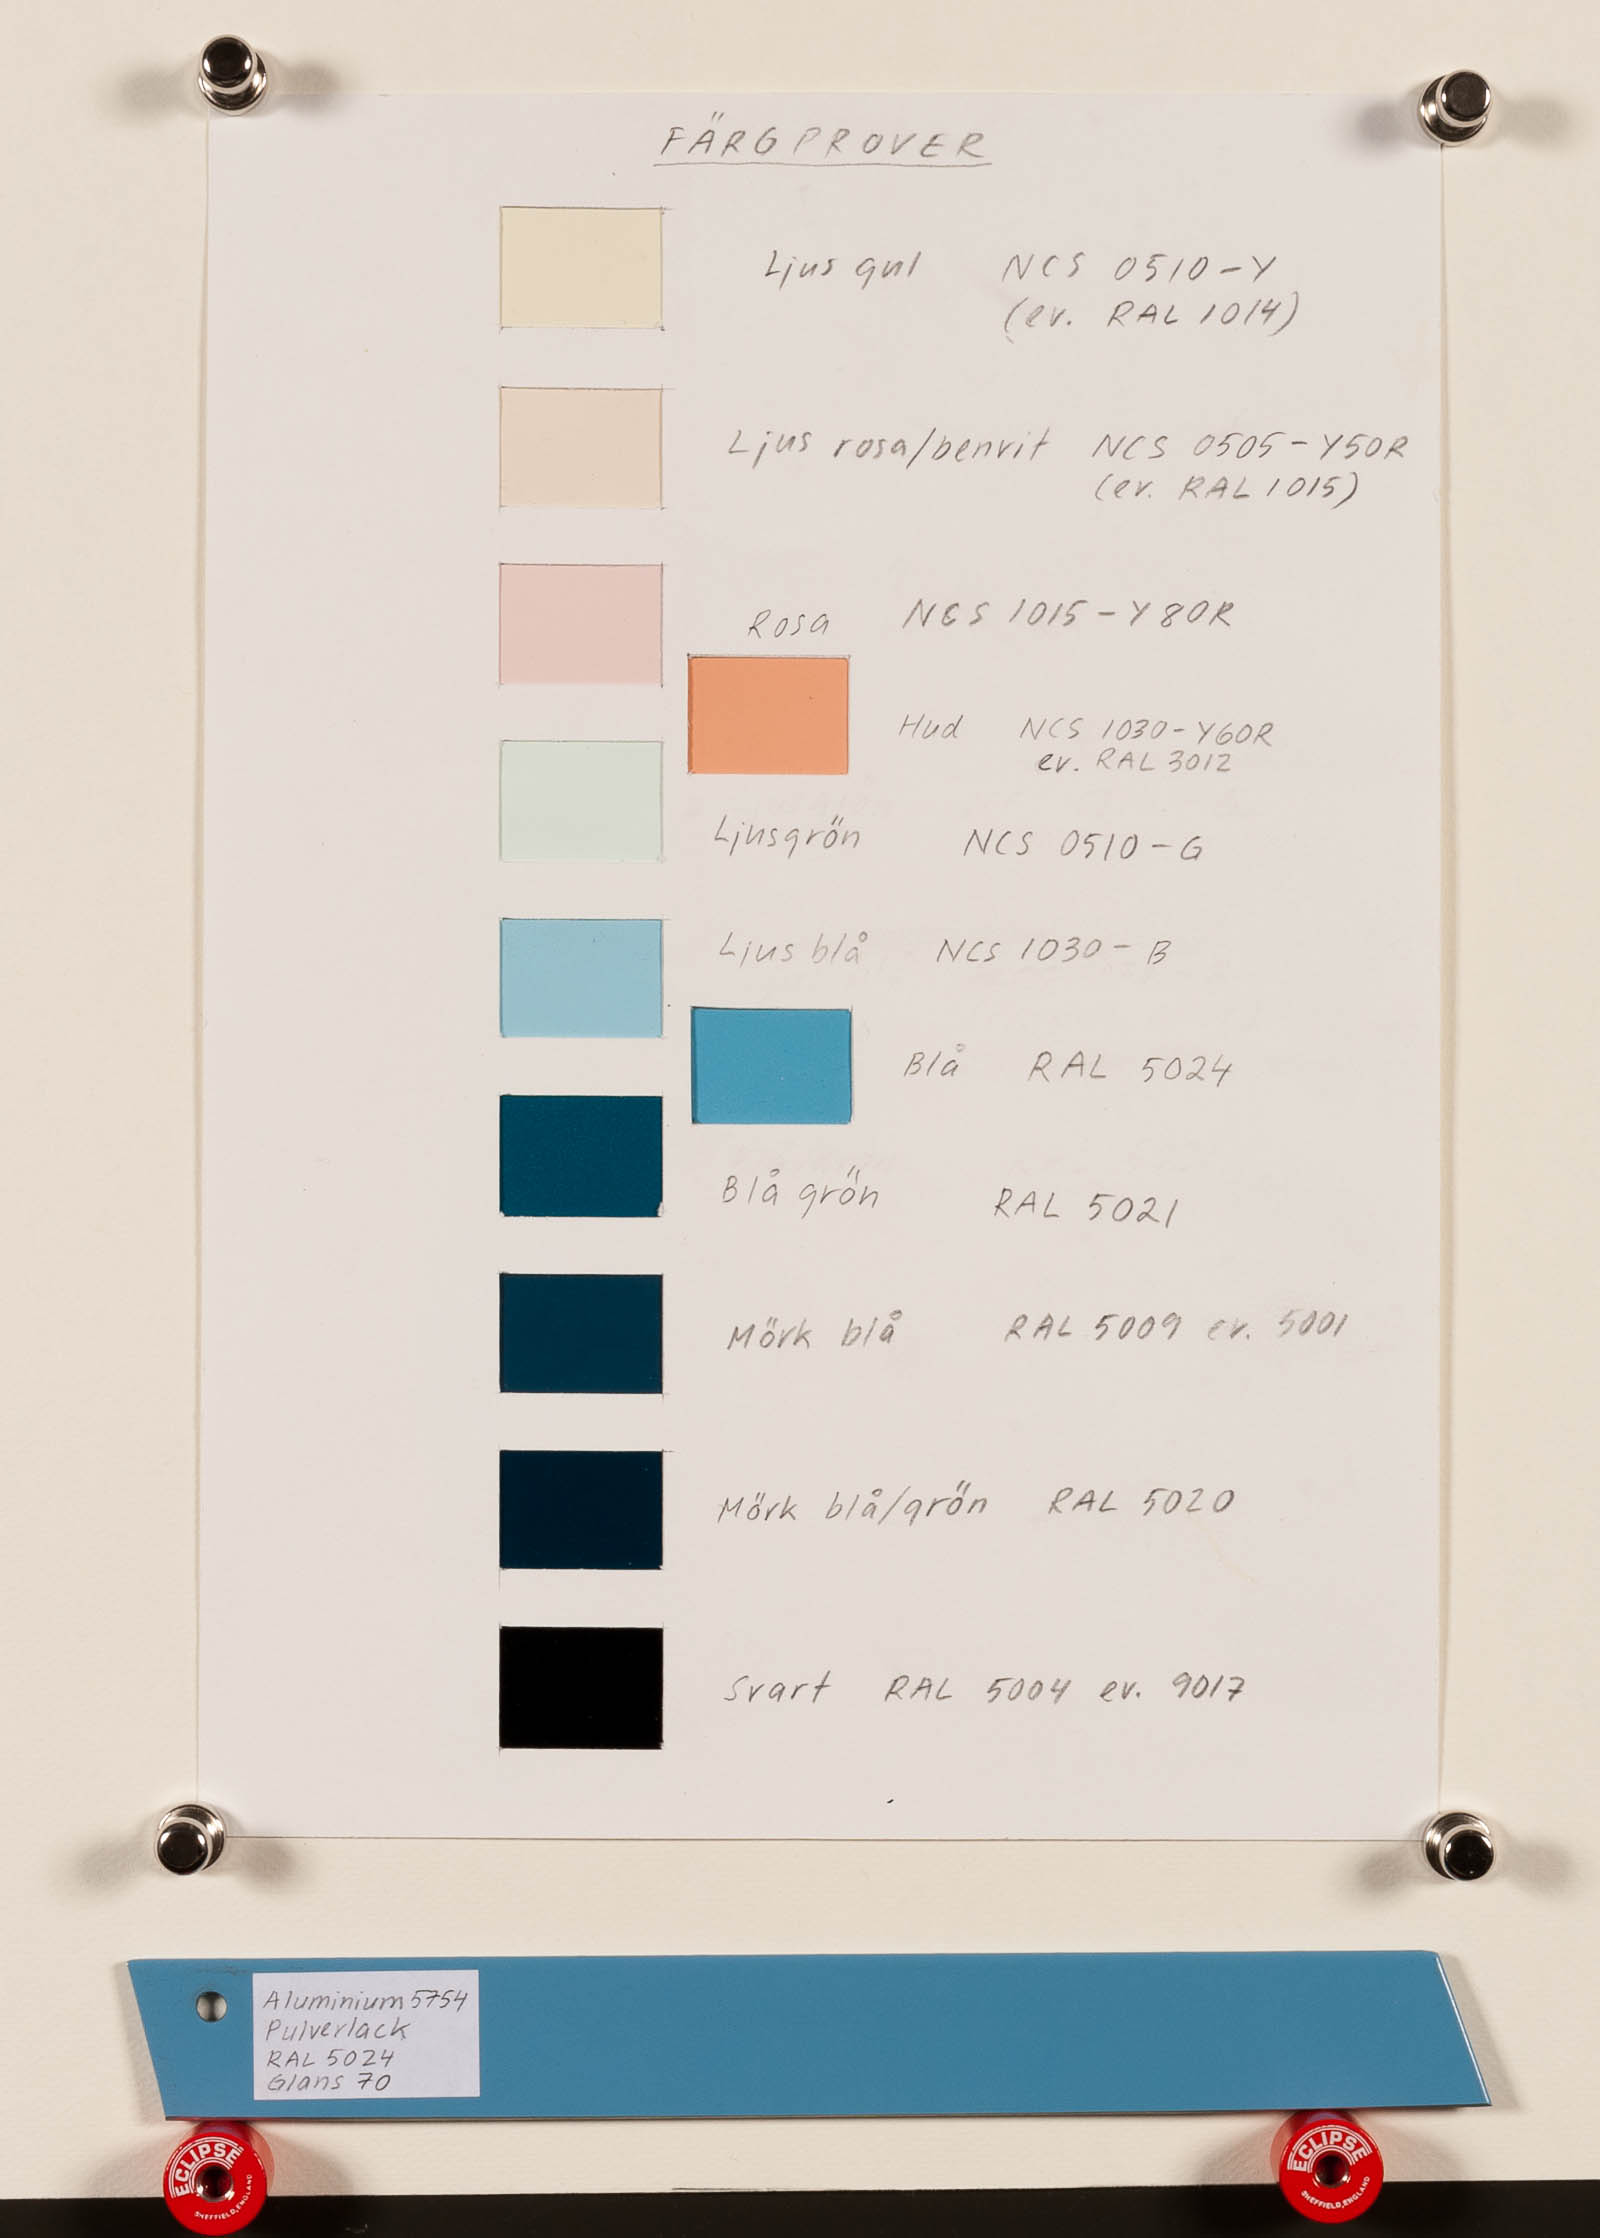 FÄRGPROVER
Ljus gul NCS 0510-Y
(ev. RAL 1014)
Ljus rosa/benvit NCS 0505-Y50R
(ev. RAL 1015)
Rosa NCS 1015-Y80R
Hud NCS 1030-Y60R
ev. RAL 3012
Ljusgrön NCS 0510-G
Ljus blå NCS 1030-B
Blå RAL 5024
Blå grön RAL 5021
Mörk blå RAL 5009 ev. 5001
Mörk blå/grön RAL 5020
Svart RAL 5004 ev. 9017
Aluminium 5754
Pulverlack
RAL 5024
Glans 70
ECLIPSE
SHEFFIELD, ENGLAND
ECLIPSE
SHEFFIELD, ENGLAND